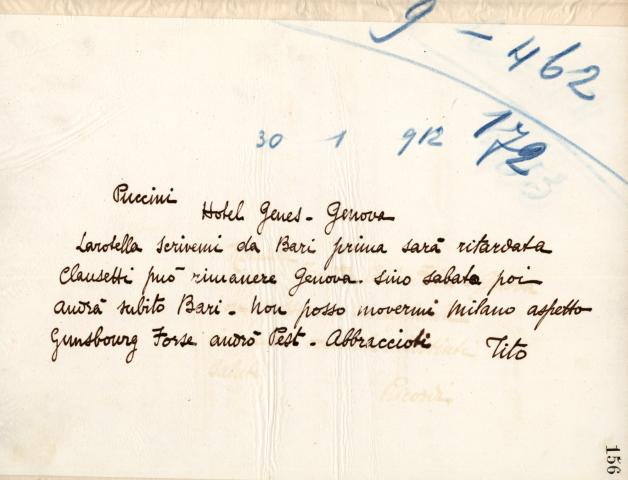 9 - 462
30 1 912 172
Puccini
Hotel Genes - Genova
Larotella scrivemi da Bari prima sarà ritardata
Clausetti può rimanere Genova sino sabato poi
andrà subito Bari - Non posso movermi Milano aspetto
Gunsbourg Forse andrò Pest - Abbraccioti
Tito
156